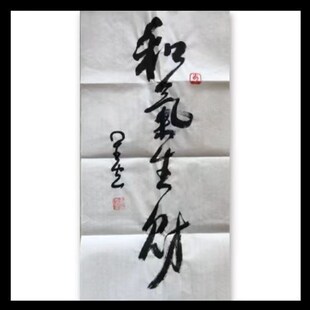 和氣生財